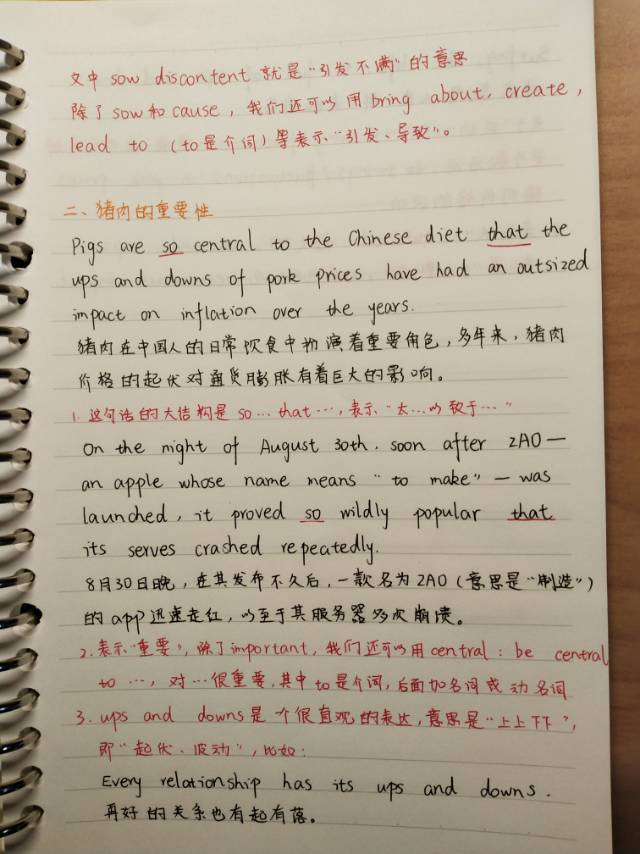 文中 sow discontent 就是“引发不满”的意思
除了sow和cause，我们还可以用bring about, create,
lead to （to是介词）等表示“引发、导致”。
二、猪肉的重要性
Pigs are so central to the Chinese diet that the
ups and downs of pork prices have had an outsized
impact on inflation over the years.
猪肉在中国人的日常饮食中扮演着重要角色，多年来，猪肉
价格的起伏对通货膨胀有着巨大的影响。
1. 这句话的大结构是 so…that…，表示“太…以致于…”
On the night of August 30th, soon after ZAO—
an apple whose name means “to make” — was
launched, it proved so wildly popular that
its serves crashed repeatedly.
8月30日晚，在其发布不久后，一款名为ZAO（意思是“制造”）
的app迅速走红，以至于其服务器多次崩溃。
2. 表示“重要”，除了important，我们还可以用central：be central
to …，对…很重要，其中to是介词，后面加名词或动名词
3. ups and downs是个很直观的表达，意思是“上上下下”，
即“起伏、波动”，比如：
Every relationship has its ups and downs.
再好的关系也有起有落。